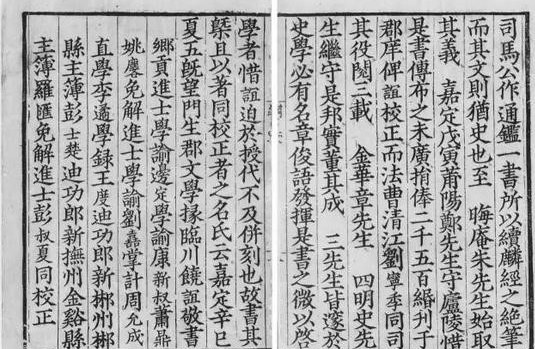 司馬公作通鑑 書所以續麟經之絕筆
而其文則猶史也至 晦庵朱先生始取
其義 嘉定戊寅莆陽鄭先生守廬陵惜
是書傳布之未廣捐俸二千五百緡刊于
郡庠俾誼校正而法曹清江劉寧季同司
其役閱三載 金華章先生 四明史先
生繼守是邦實董其成 三先生皆邃於
史學必有名章俊語發揮是書之微以啓
學者惜誼迫於授代不及併刻也故書其
槩且以著同校正者之名氏云嘉定辛巳
夏五旣望門生郡文學掾臨川饒誼敬書
鄉貢進士學諭邊定學諭康新叔蕭鼎
姚免解進士學諭劉掌計周允成
直學李遹學錄王度迪功郎新郴州郴
縣主簿彭士楚迪功郎新撫州金谿縣
主簿羅匯免解進士彭叔夏同校正